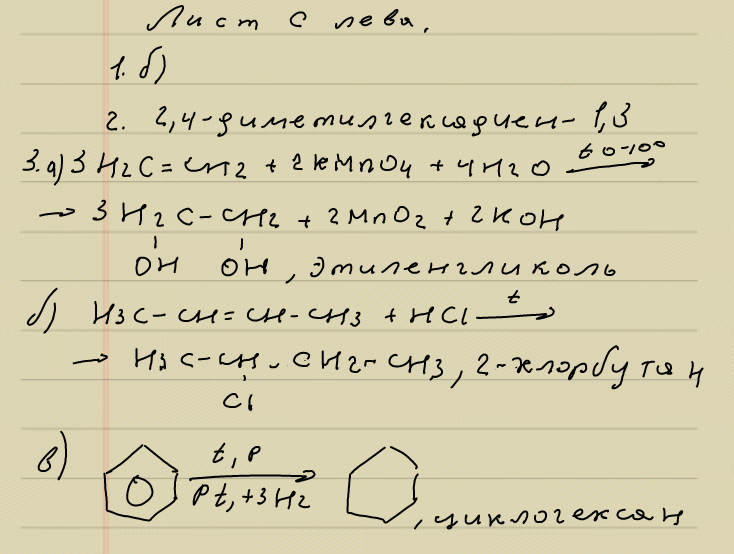 Лист слева.
1. б)
2. 2,4-диметилгексадиен-1,3
3. а) 3 H2C=CH2 + 2KMnO4 + 4H2O t 0-10⁰ →
→ 3 H2C-CH2 + 2MnO2 + 2KOH
OH OH, Этиленгликоль
б) H3C-CH=CH-CH3 + HCl t →
→ H3C-CH-CH2-CH3, 2-хлорбутан
Cl
в) t, P
Pt, +3H2 → , циклогексан